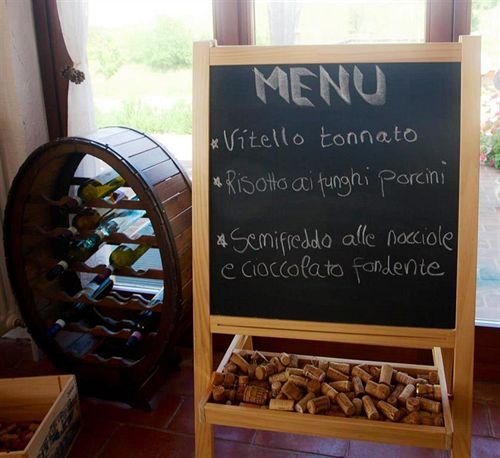 MENU
* Vitello tonnato
* Risotto ai funghi porcini
* Semifreddo alle nocciole
e cioccolato fondente